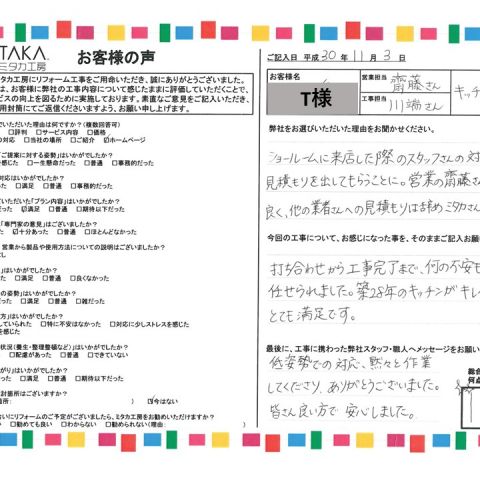 TAKA
ミタカ工房
お客様の声
タカ工房にリフォーム工事をご用命いただき、誠にありがとうございました。
は、お客様に弊社の工事内容について感じたままに評価していただくことで、
ビスの向上を図るために実施しております。素直なご意見をご記入いただき、
用封筒にてご返信くださいますよう、お願い申し上げます。
いただいた理由は何ですか?(複数回答可)
□評判 □サービス内容 □価格
の対応 □当社の場所 □ご紹介 ☑ホームページ
「ご提案に対する姿勢」はいかがでしたか?
と感じた □一生懸命だった □普通 □事務的だった
対応はいかがでしたか?
った □満足 □普通 □事務的だった
ていただいた「プラン内容」はいかがでしたか?
だった ☑満足 □普通 □期待以下だった
「専門家の意見」はございましたか?
た ☑十分あった □普通 □ほとんどなかった
営業から製品や使用方法についての説明はございましたか?
なし
」はいかがでしたか?
った □満足 □普通 □良くなかった
の姿勢」はいかがでしたか?
だった □普通 □雑だった
」はいかがでしたか?
していられた □特に不安はなかった □対応に少しストレスを感じた
を感じた
状況(養生・整理整頓など)」はいかがでしたか?
□配慮があった □普通 □できていない
がり」はいかがでしたか?
った □満足 □普通 □期待以下だった
討箇所はございますか?
箇所: ) ☑今はない
会いにリフォームのご予定がございましたら、ミタカ工房をお勧めいただけますか?
い □勧めても良い □わからない □勧められない(理由:
ご記入日 平成 30 年 11 月 3 日
お客様名
T様
営業担当 齋藤さん
工事担当 川端さん
キッチ
弊社をお選びいただいた理由をお聞かせください。
ショールームに来店した際のスタッフさんの対
見積もりを出してもらうことに。営業の齋藤さん
良く、他の業者さんへの見積もりは辞め ミタカさん
今回の工事について、お感じになった事を、そのままご記入お願
打ち合わせから工事完了まで、何の不安も
任せられました。築28年のキッチンがキレ
とても満足です。
最後に、工事に携わった弊社スタッフ・職人へメッセージをお願い
低姿勢での対応、黙々と作業
してくださり、ありがとうございました。
皆さん良い方で安心しました。
総合
何点